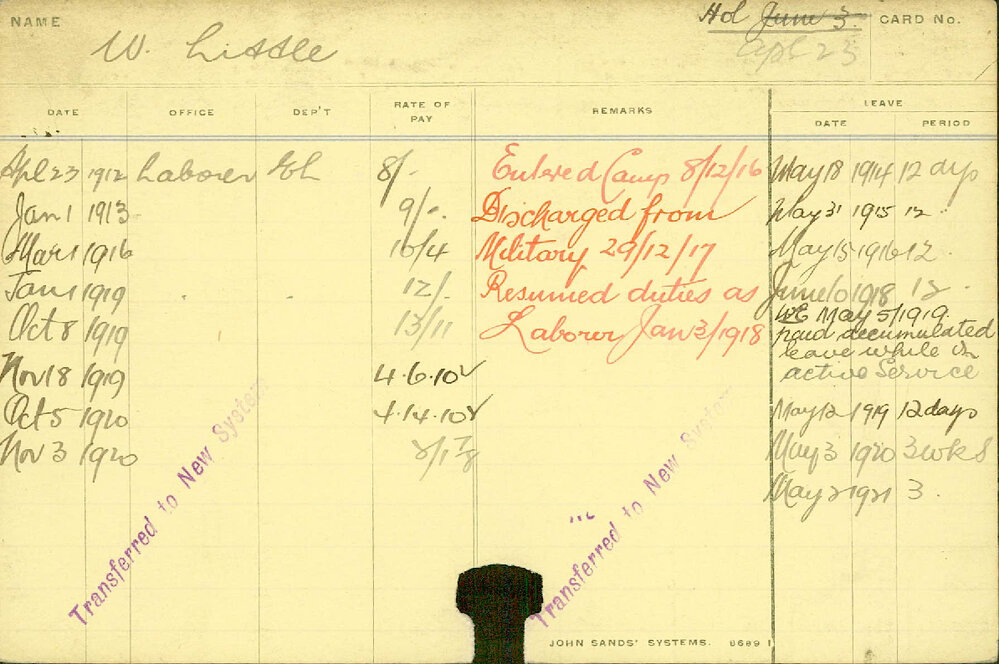 NAME W. Little Hol June 3. CARD No.
Apl 23
DATE OFFICE DEP'T RATE OF PAY REMARKS LEAVE
DATE PERIOD
Apl 23 1912 Laborer 8/- Entered Camp 8/12/16 May 18 1914 12 dys
Jan 1 1913 9/- Discharged from May 31 1915 12
Mar 1 1916 10/4 Military 29/12/17 May 15 1916 12
Jan 1 1919 12/- Resumed duties as June 10 1918 12
Oct 8 1919 13/11 Laborer Jan 3/1918 WE May 5/1919
paid accumulated
leave while on
Nov 18 1919 4.6.10 active Service
Oct 5 1920 4.14.10 May 12 1919 12 days
Nov 3 1920 May 3 1920 3 wks
May 2 1921 3
Transferred to New System
Transferred to New System
JOHN SANDS' SYSTEMS. 8689